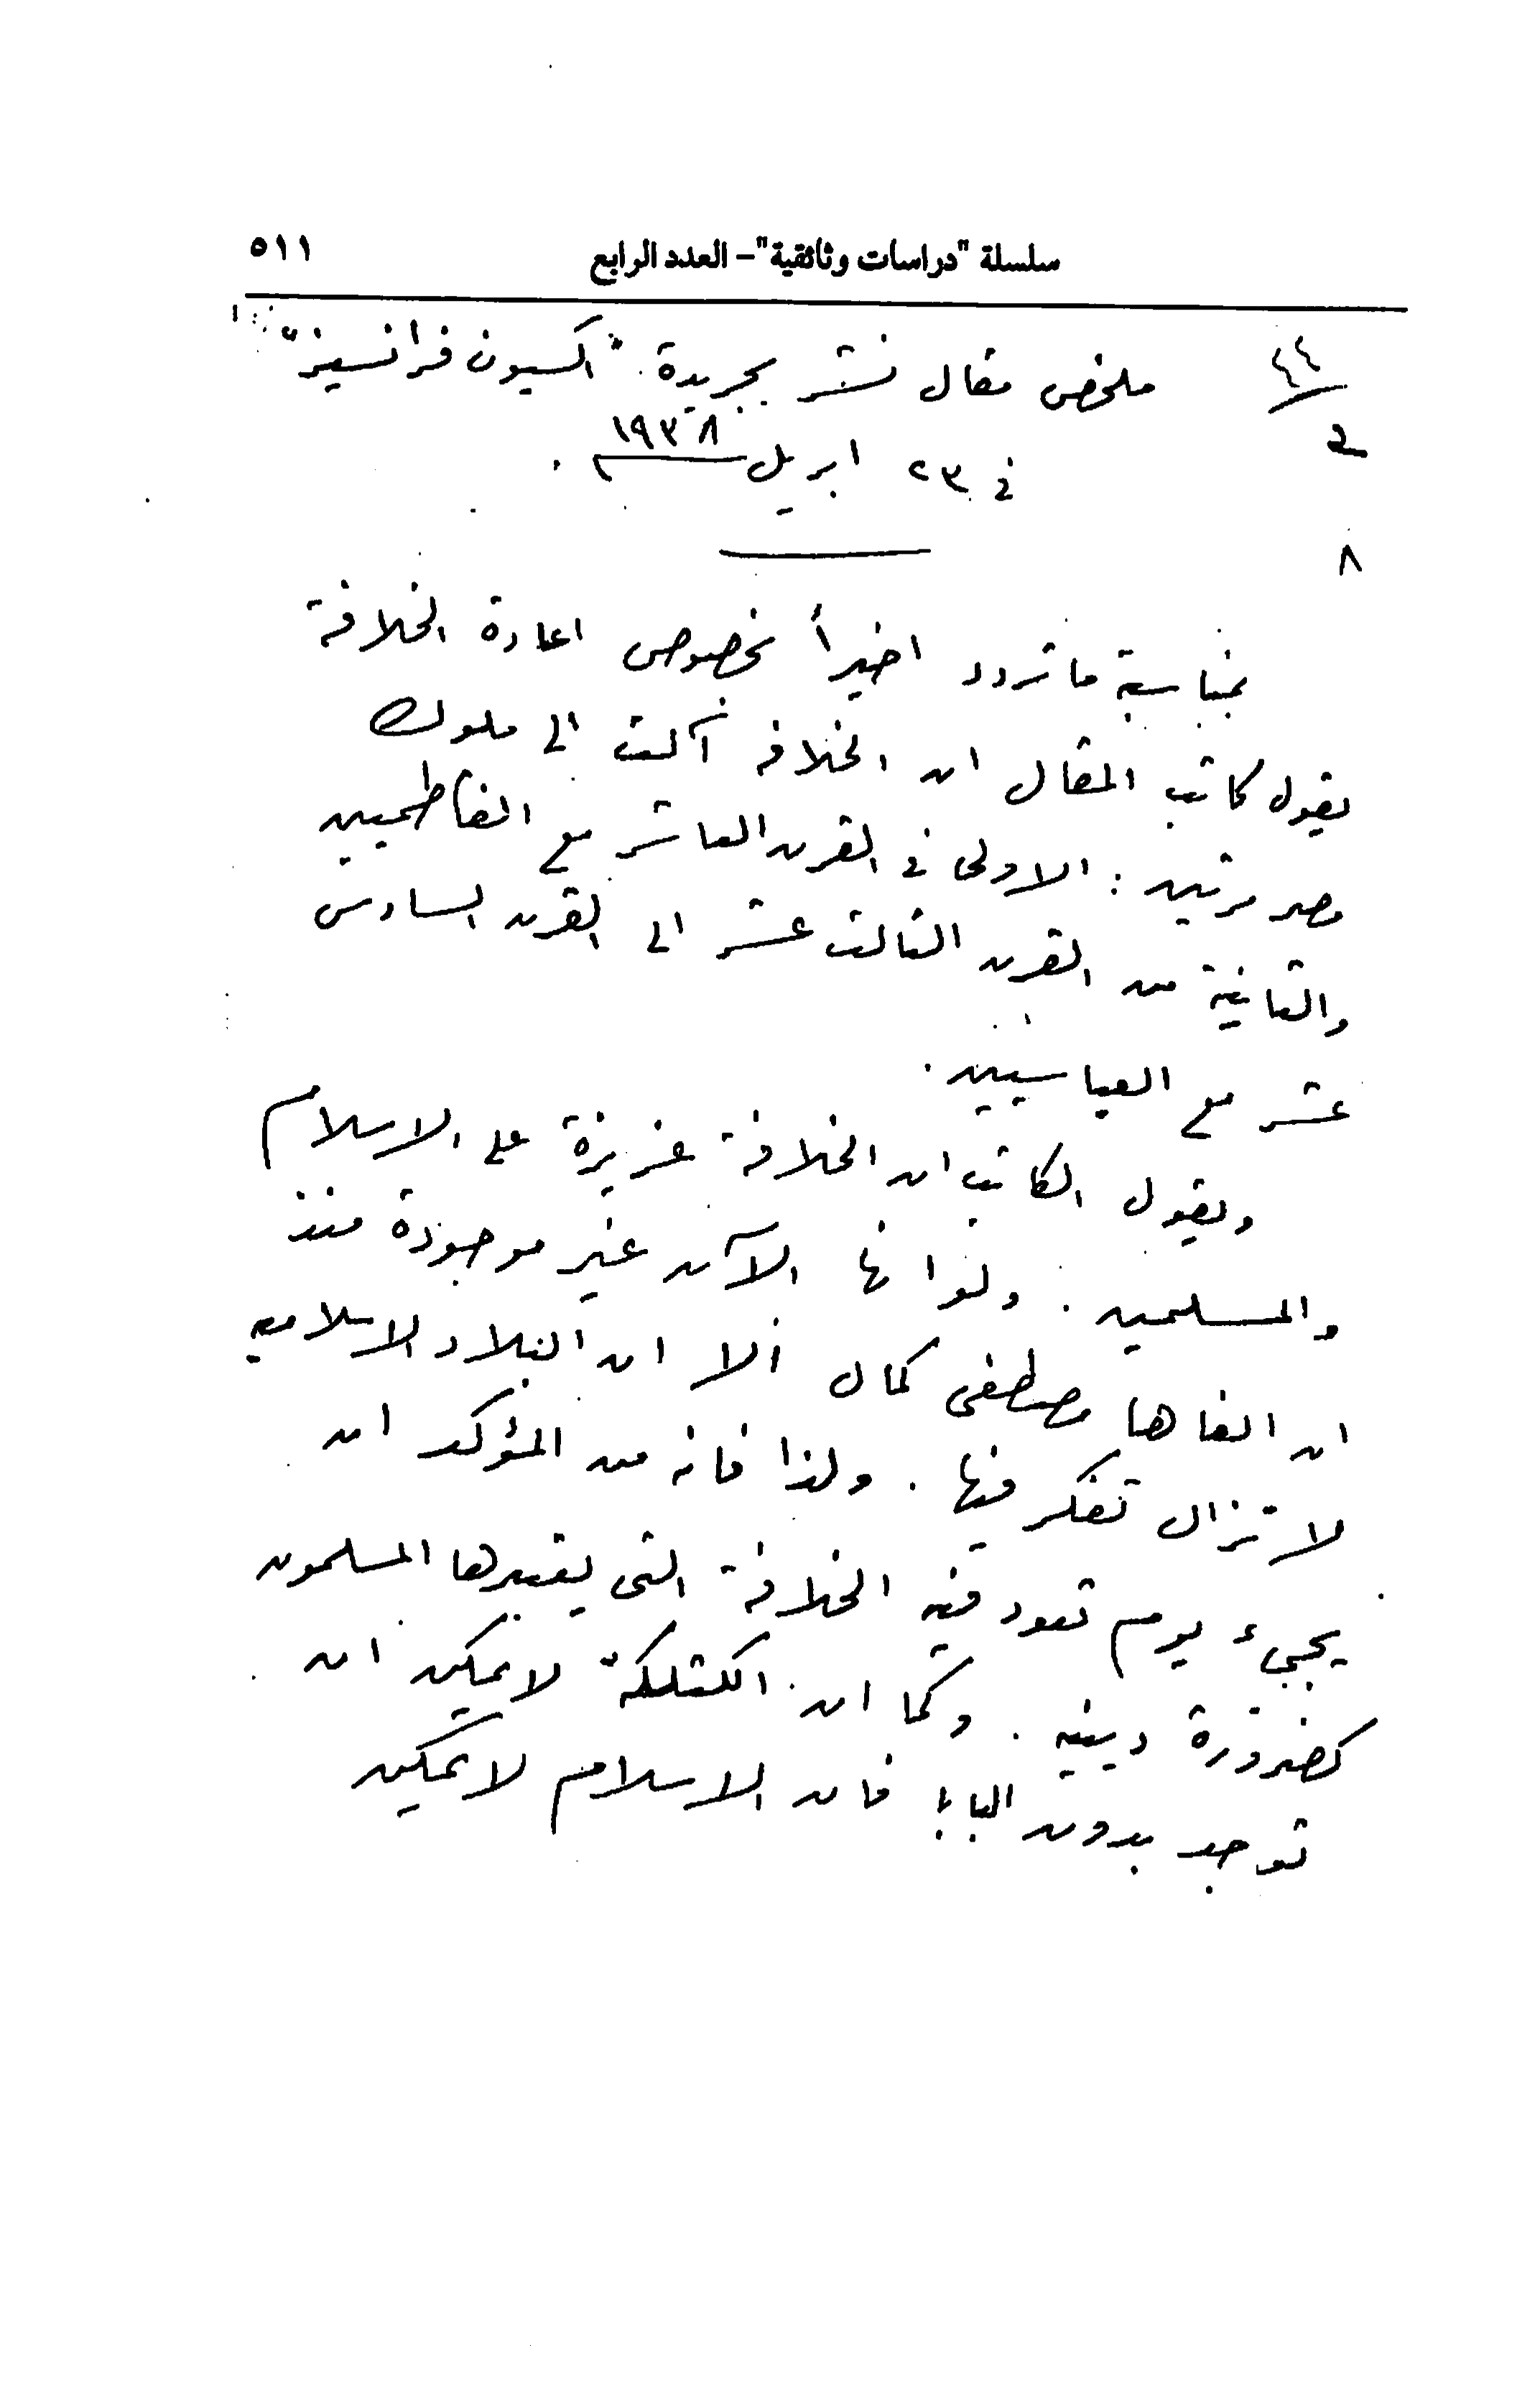 سلسلة "دراسات وثائقية" – العدد الرابع ٥١١
٤٤
ملخص مقال نشر بجريدة "اكسيون فرانسيز"
في ٢٣ ابريل ١٩٣٨
٨
بمناسبة ما تردد اخيراً بخصوص اعادة الخلافة
يقول كاتب المقال ان الخلافه آلت الى ملوك
مصر مرتين : الاولى في القرن العاشر مع الفاطميين
والثانية من القرن الثالث عشر الى القرن السادس
عشر مع العباسيين .
ويقول الكاتب ان الخلافة عزيزة على الاسلام
والمسلمين . ولو انها الآن غير موجودة منذ
ان الغاها مصطفى كمال الا ان البلاد الاسلاميه
لا تزال تفكر فيها . ولذا فانه من المؤكد ان
يجيء يوم تعود فيه الخلافة التى يعتبرها المسلمون
كضرورة دينيه . وكما ان الكثلكة لا يمكن ان
توجد بدون البابا فان الاسلام لا يمكن